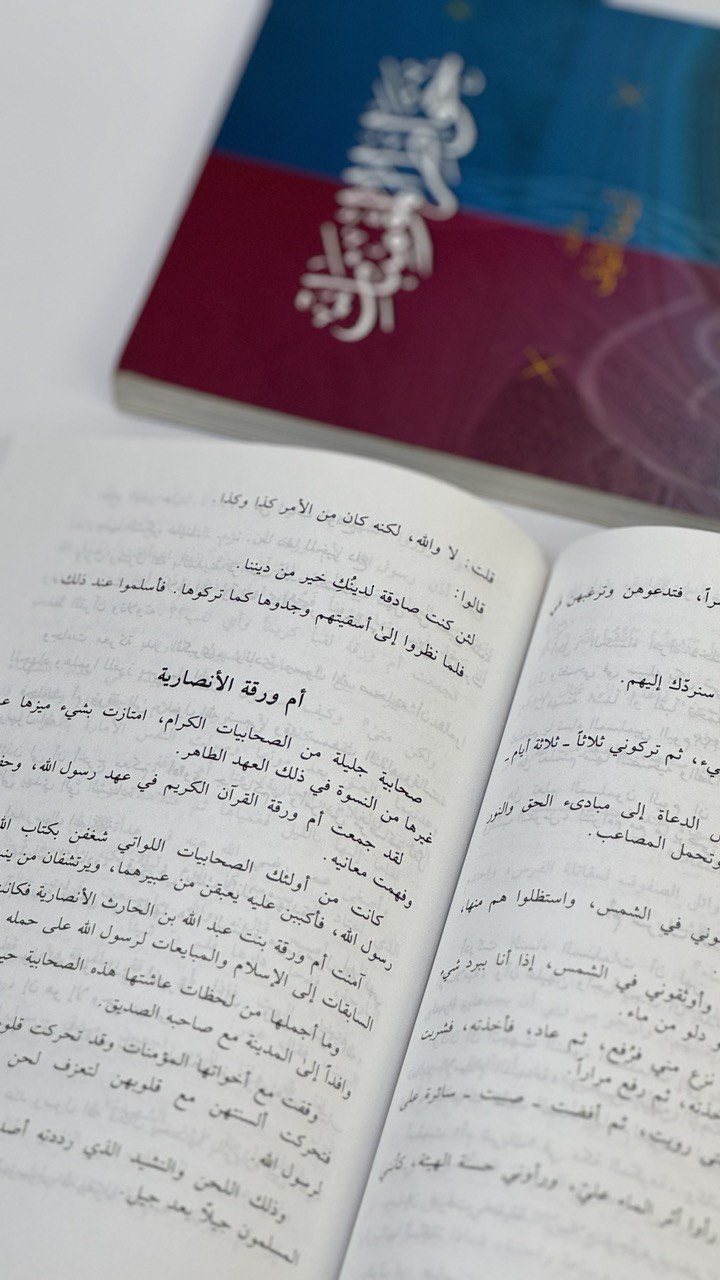 سراً، فتدعوهن وترغبهن في
سنردّك إليهم.
ثم تركوني ثلاثاً ـ ثلاثة أيام ـ
الدعاة إلى مبادىء الحق والنور
وتحمل المصاعب.
في الشمس، واستظلوا هم منها،
وأوثقوني في الشمس، إذا أنا ببرد شيء
دلو من ماء.
نزع مني فرُفع، ثم عاد، فأخذته، فشربت
ثم رفع مراراً.
رويت، ثم أفضت ـ صببت ـ سائره على
رأوا أثر الماء عليّ، ورأوني حسنة الهيئة،
قلت: لا والله، لكنه كان من الأمر كذا وكذا.
قالوا:
لئن كنت صادقة لدينُكِ خير من ديننا.
فلما نظروا إلىٰ أسقيتهم وجدوها كما تركوها. فأسلموا عند ذلك.
أم ورقة الأنصارية
صحابية جليلة من الصحابيات الكرام، امتازت بشيء ميزها
غيرها من النسوة في ذلك العهد الطاهر.
لقد جمعت أم ورقة القرآن الكريم في عهد رسول الله،
وفهمت معانيه.
كانت من أولئك الصحابيات اللواتي شغفن بكتاب
رسول الله، فأكببن عليه يعبقن من عبيرهما، ويرتشفان من
آمنت أم ورقة بنت عبد الله بن الحارث الأنصارية
السابقات إلى الإسلام والمبايعات لرسول الله على حمله
وما أجملها من لحظات عاشتها هذه الصحابية
وافداً إلى المدينة مع صاحبه الصديق.
وقفت مع أخواتها المؤمنات وقد تحركت
فتحركت ألسنتهن مع قلوبهن لتعزف لحن
لرسول الله.
وذلك اللحن والنشيد الذي رددته
المسلمون جيلاً بعد جيل.